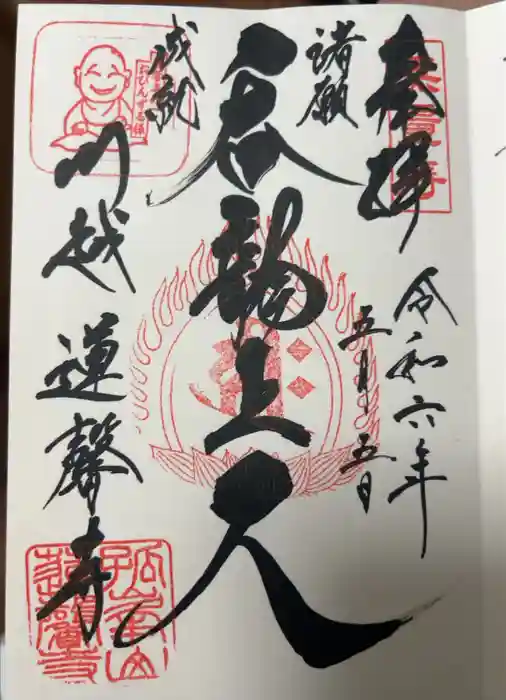 奉拝
令和六年
五月十五日
諸願
呑龍上人
成就
おびんずる様
川越 蓮馨寺